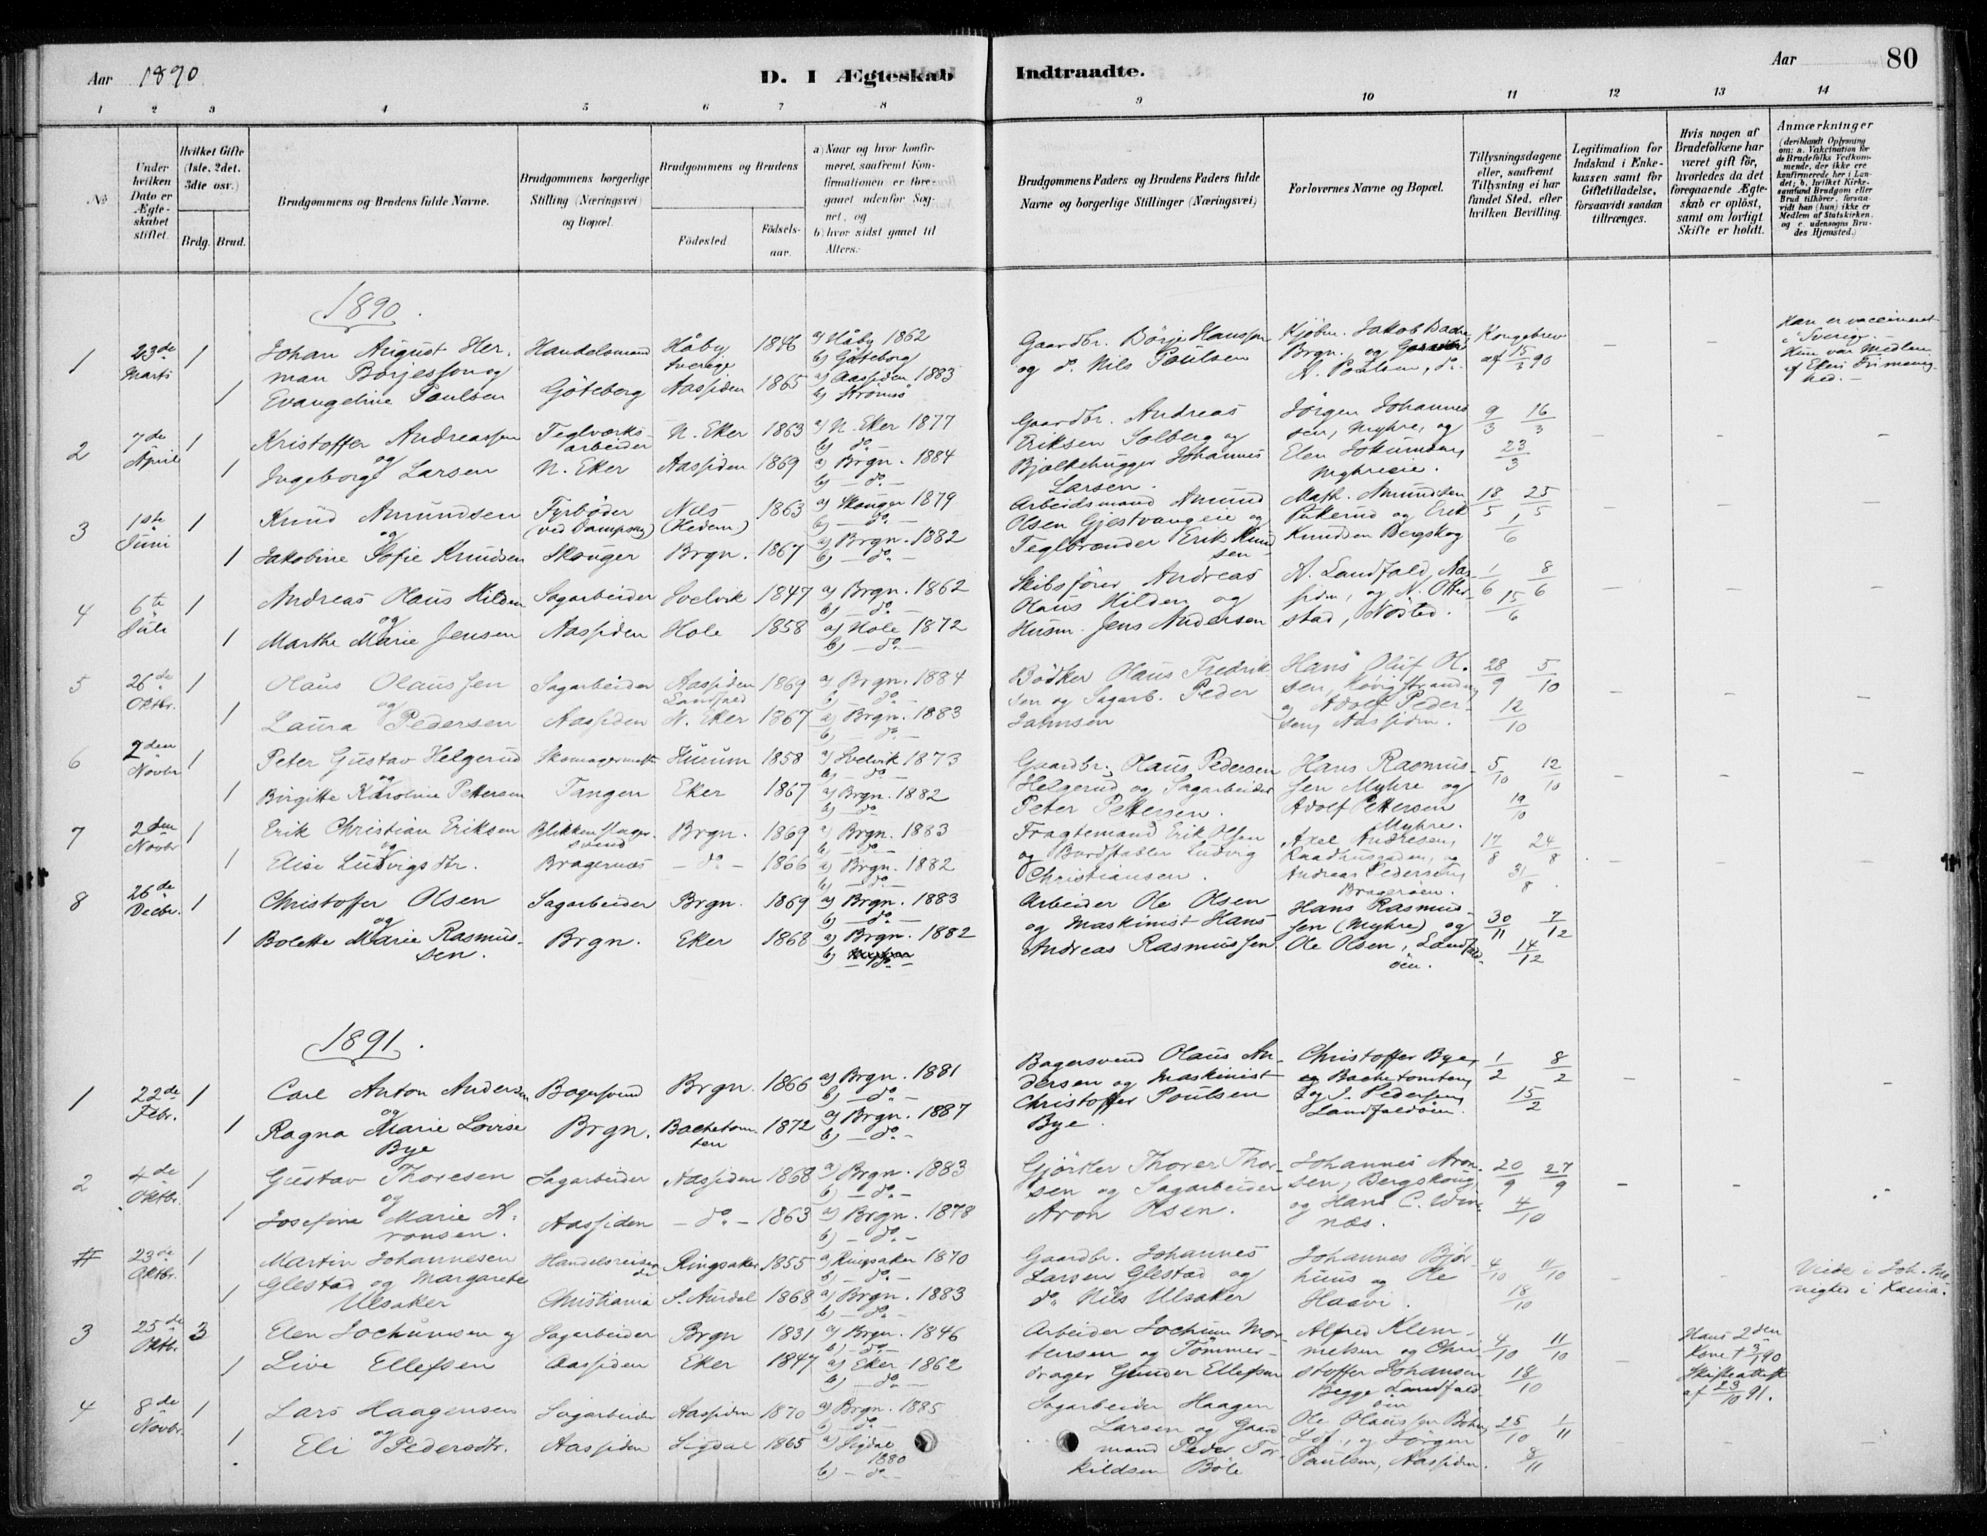 Aar 1890
D. I Ægteskab
Indtraadte.
Aar
80
1 2 3 4 5 6 7 8 9 10 11 12 13 14
No
Under hvilken Dato er Ægteskabet stiftet.
Hvilket Gifte (1ste, 2det, 3die osv.)
Brdg. Brud.
Brudgommens og Brudens fulde Navne.
Brudgommens borgerlige Stilling (Næringsvei) og Bopæl.
Brudgommens og Brudens
Fødested.
Fødselsaar.
a) Naar og hvor konfirmeret, saafremt Konfirmationen er foregaaet udenfor Sognet, og
b) hvor sidst gaaet til Alters.
Brudgommens Faders og Brudens Faders fulde Navne og borgerlige Stillinger (Næringsvei)
Forlovernes Navne og Bopæl.
Tillysningsdagene eller, saafremt Tillysning ei har fundet Sted, efter hvilken Bevilling.
Legitimation for Indskud i Enkekassen samt for Giftetilladelse, forsaavidt saadan tiltrænges.
Hvis nogen af Brudefolkene har været gift før, hvorledes da det foregaaende Ægteskab er opløst, samt om lovligt Skifte er holdt.
Anmærkninger
(deriblandt Oplysning om: a. Vakcination for de Brudefolks Vedkommende, der ikke ere konfirmerede her i Landet; b. hvilket Kirkesamfund Brudgom eller Brud tilhører, forsaavidt han (hun) ikke er Medlem af Statskirken, og c. udensogns Brudes Hjemsted.)
1890.
1 23de Marts 1 Johan August Herman Börjesson og Handelsmand Håby Sverige 1846 a) Håby 1862 b) Göteborg
1 Evangeline Paulsen Göteborg Aassiden 1865 a) Aassiden 1883 b) Strömsö
Gaardbr. Börje Hansson og do. Nils Paulsen
Kjøbm. Jakob Brgn. og
Kongebrev af 15/3 90
Han er vaccineret i Sverige. Hun var Medlem af Ekers Frimenighed.
2 7de April 1 Kristoffer Andreassen og Teglværksarbeider N. Eker 1863 a) N. Eker 1877 b) do.
1 Ingeborg Larsen N. Eker Aassiden 1869 a) Brgn. 1884 b) - do. -
Gaardbr. Andreas Eriksen Solberg og Bjælkehugger Johannes Larsen.
Jörgen Johannessen, Myhre, og Elen Jokumsen, Myhreeie.
9/3 16/3 23/3
3 1ste Juni 1 Knud Amundsen og Fyrbøder (ved Dampsag) Næs (Hedem) 1863 a) Skouger 1879 b) - do. -
1 Jakobine Sofie Knudsen Skouger Brgn. 1867 a) Brgn. 1882 b) - do. -
Arbeidsmand Amund Olsen Gjestvangeie og Teglbrænder Erik Knudsen
Math. Amundsen Pukerud og Erik Knudsen Bergskog
18/5 25/5 1/6
4 6te Juli 1 Andreas Olaus Hilden og Sagarbeider Svelvik 1847 a) Brgn. 1862 b) - do. -
1 Marthe Marie Jensen Aassiden Hole 1858 a) Hole 1872 b) - do. -
Skibsfører Andreas Olaus Hilden og Husm. Jens Andersen
A. Landfald, Aassiden, og N. Otterstad, Nøsted.
1/6 8/6 15/6
5 26de Oktbr. 1 Olaus Olaussen og Sagarbeider Aassiden Landfald 1869 a) Brgn. 1884 b) - do. -
1 Laura Pedersen Aassiden N. Eker 1867 a) Brgn. 1883 b) - do. -
Bødker Olaus Fredriksen og Sagarb. Peder Jahnsen
Hans Oluf Olsen, og Adolf Pedersen, Aassiden.
28/9 5/10 12/10
6 2den Novbr 1 Peter Gustav Helgerud og Skomagermester Hurum 1858 a) Svelvik 1873 b) - do. -
1 Birgitte Karoline Pettersen Tangen Eker 1867 a) Brgn. 1882 b) - do. -
Gaardbr. Olaus Pedersen Helgerud og Sagarbeider Peter Pettersen.
Hans Rasmussen Myhre og Adolf Pettersen Myhre.
5/10 12/10 19/10
7 2den Novbr 1 Erik Christian Eriksen og Blikkenslagersvend Brgn. 1869 a) Brgn. 1883
1 Elise Ludvigsdtr. Bragernæs - do. - 1866 a) Brgn. 1882 b) - do. -
Fragtemand Erik Olsen og Bordstabler Ludvig Christiansen.
Axel Andresen, Raadhusgaden, og Andreas Pedersen, Bragerøen.
17/8 24/8 31/8
8 26de Decbr. 1 Christoffer Olsen og Sagarbeider Brgn. 1869 a) Brgn. 1883 b) - do. -
1 Bolette Marie Rasmussen. Brgn. Eker 1868 a) Brgn. 1882 b) - do. -
Arbeider Ole Olsen og Maskinist Hans Andreas Rasmussen
Hans Rasmussen (Myhre) og Ole Olsen, Landfaldøen.
30/11 7/12 14/12
1891.
1 22de Febr. 1 Carl Anton Andersen og Bagersvend Brgn. 1866 a) Brgn. 1881 b) - do. -
1 Ragna Marie Lovise Bye Brgn. Bachetomten 1872 a) Brgn. 1887 b) - do. -
Bagersvend Olaus Andersen og Maskinist Christoffer Poulsen Bye.
Christoffer Bye, Bachetomten, og J. Pedersen, Landfaldøen.
1/2 8/2 15/2
2 4de Oktbr. 1 Gustav Thoresen og Sagarbeider Aassiden 1868 a) Brgn. 1883 b) - do. -
1 Josefine Marie Aronsen. Aassiden - do. - 1863 a) Brgn. 1878 b) - do. -
Gjörtler Thorer Thorsen og Sagarbeider Aron Olsen.
Johannes Aronsen, Bergskoug og Hans C. næs.
20/9 27/9 4/10
# 23de Oktbr. 1 Martin Johannesen Glestad og Handelsreisende Ringsaker 1855 a) Ringsaker 1870 b) - do. -
1 Margarete Ulsaker Christiania S. Aurdal 1868 a) Brgn. 1883 b) - do. -
Gaardbr. Johannes Larsen Glestad og do. Nils Ulsaker
Johannes Bjørhuus og Ole Haavi.
4/10 11/10 18/10
Viede i Joh. Menighed i Xania.
3 25de Oktbr. 3 Elen Jochumsen og Sagarbeider Brgn 1831 a) Brgn. 1846 b) - do. -
1 Live Ellefsen Aassiden Eker 1847 a) Eker 1862 b) - do. -
Arbeider Jochum Mortensen og Tømmerdrager Gunder Ellefsen
Alfred Klemmetsen og Christoffer Johansen Begge Landfaldøen
4/10 11/10 18/10
Hans 2den Kone † 3/1 90 Skifteattest af 23/10 91.
4 8de Novbr. 1 Lars Haagensen og Sagarbeider Aassiden 1870 a) Brgn. 1885 b) - do. -
1 Eli Pedersdtr. Aassiden Sigdal 1865 a) Sigdal 1880 b) - do. -
Sagarbeider Haagen Larsen og Gaardmand Peder Torkildsen Böle
Ole Olaussen og Jørgen Paulsen, Aassiden.
25/10 1/11 8/11